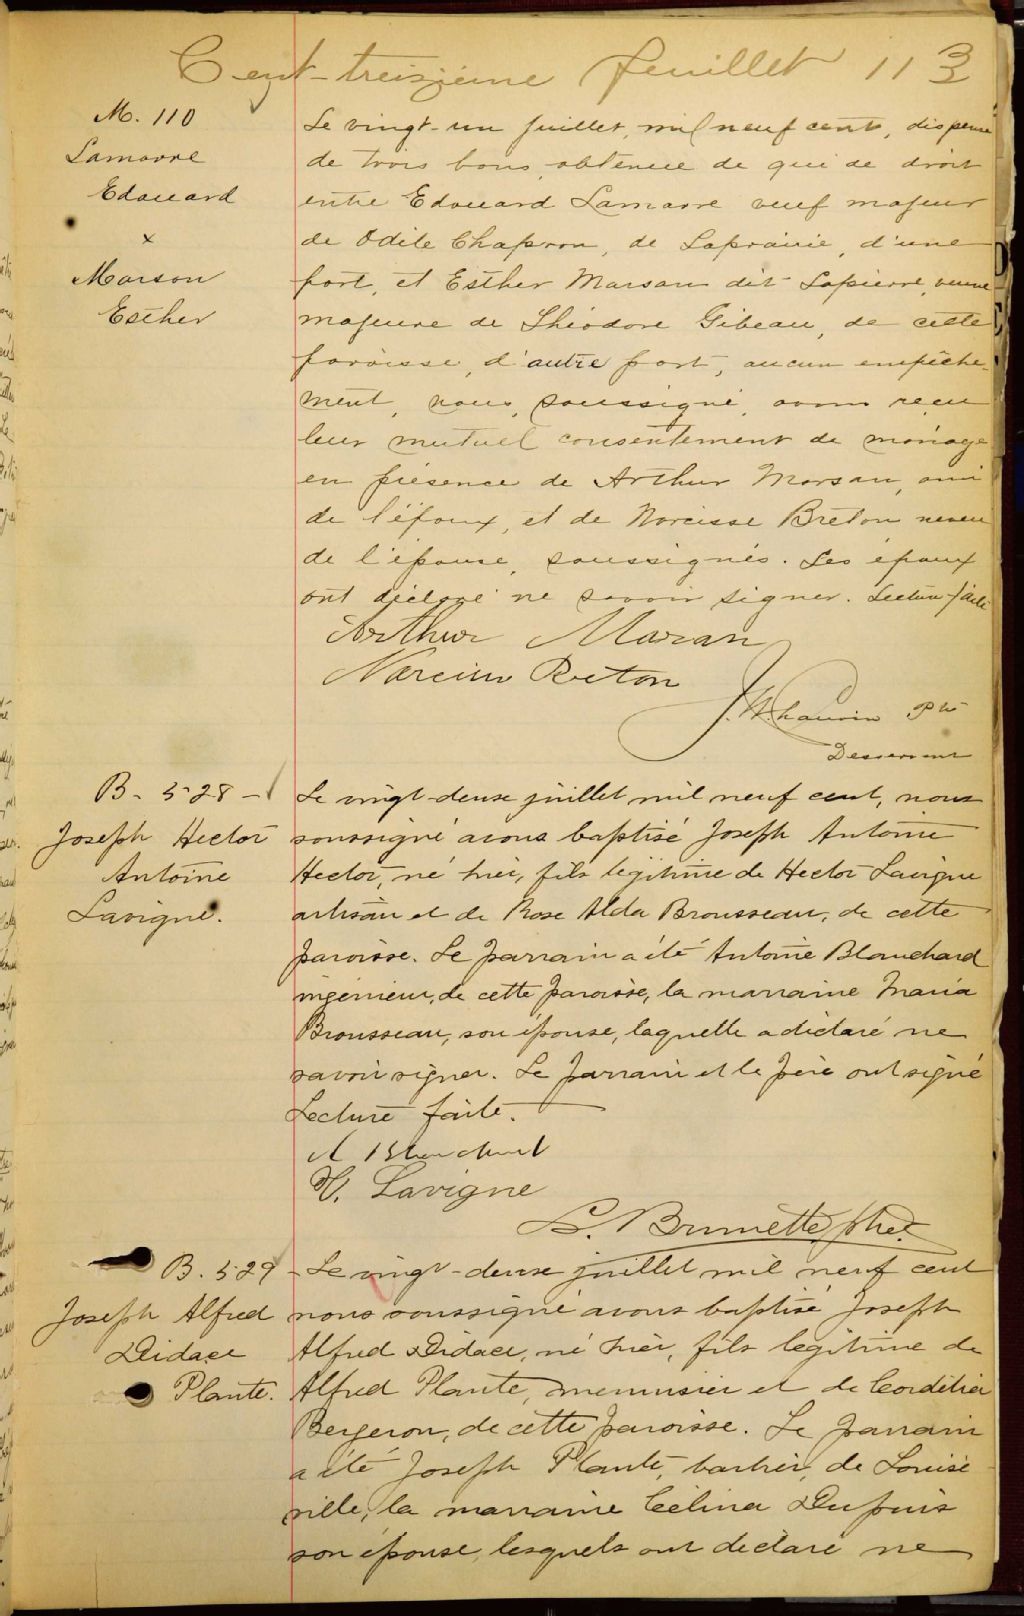 Cent-treizième feuillet 113
M. 110
Lamarre
Edouard
x
Marson
Esther
Le vingt-un juillet, mil neuf cents, dispense
de trois bans, obtenue de qui de droit
entre Edouard Lamarre veuf majeur
de Odile Chapron, de Laprairie, d'une
part, et Esther Marsan dit Lapierre, veuve
majeure de Théodore Gibeau, de cette
paroisse, d'autre part, aucun empêche-
ment, nous, soussigné, avons reçu
leur mutuel consentement de mariage
en présence de Arthur Marsan, ami
de l'époux, et de Narcisse Breton neveu
de l'épouse, soussignés. Les époux
ont déclaré ne savoir signer. Lecture faite
Arthur Marsan
Narcisse Breton
Ptre
Desservant
B. 528 -
Joseph Hector
Antoine
Lavigne.
Le vingt-deux juillet mil neuf cent, nous
soussigné avons baptisé Joseph Antoine
Hector, né hier, fils légitime de Hector Lavigne
artisan et de Rose Alda Brousseau, de cette
paroisse. Le parrain a été Antoine Blanchard
ingénieur, de cette paroisse, la marraine Maria
Brousseau, son épouse, laquelle a déclaré ne
savoir signer. Le parrain et le père ont signé
Lecture faite.
A Blanchard
H. Lavigne
L. Brunette, ptre.
B. 529
Joseph Alfred
Didace
Plante.
Le vingt-deux juillet mil neuf cent
nous soussigné avons baptisé Joseph
Alfred Didace, né hier, fils légitime de
Alfred Plante, menuisier et de Cordélia
Bergeron, de cette paroisse. Le parrain
a été Joseph Plante, barbier, de Louise
ville, la marraine Célina Dupuis
son épouse, lesquels ont déclaré ne